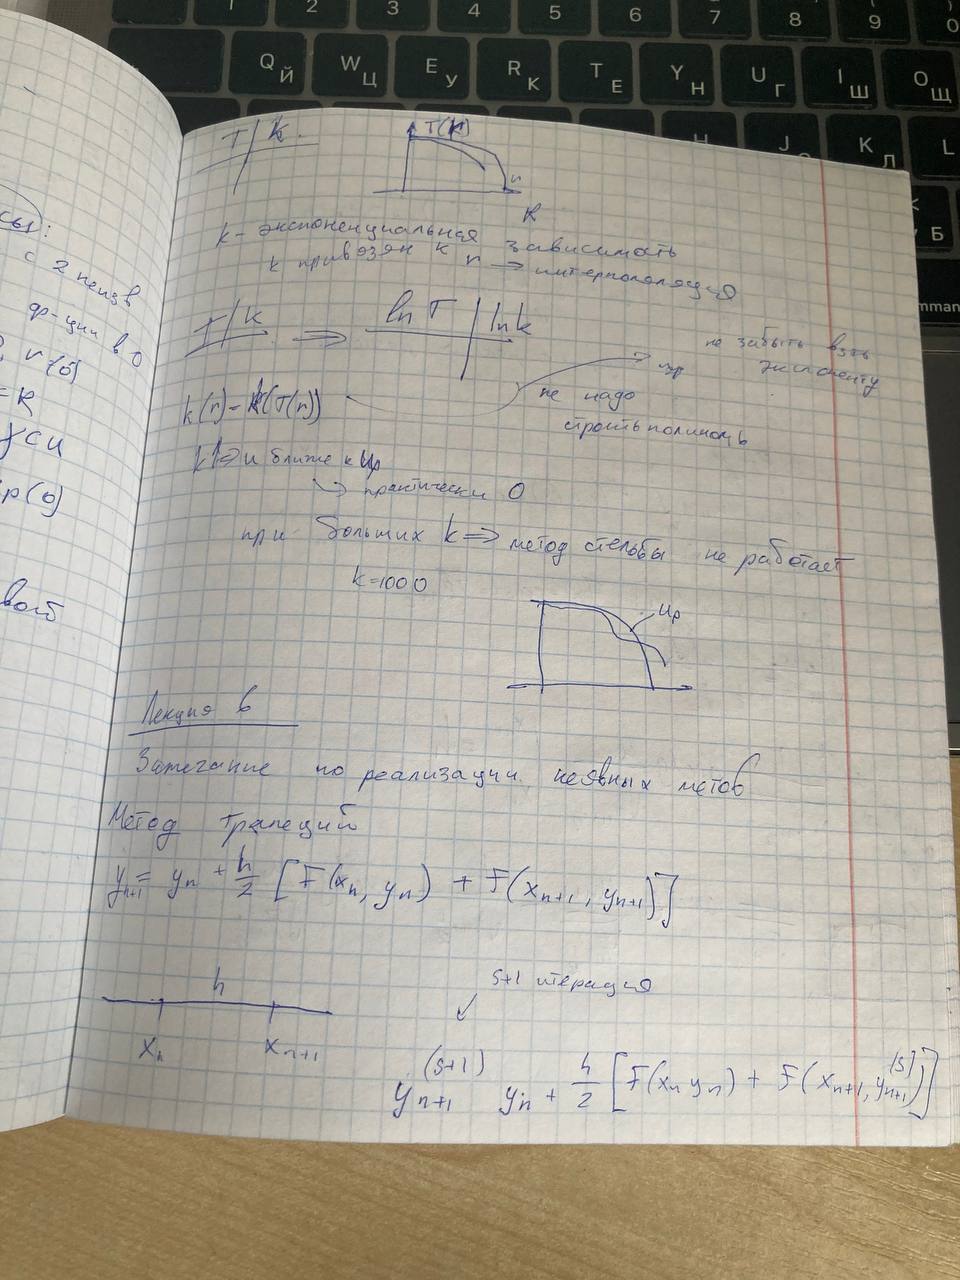 1 2 3 4 5 6 7 8 9 0
Q Й W Ц E У R К T Е Y Н U Г I Ш O Щ
H J K Л L
Б
mman
T | k
T(k)
r
R
k - экспоненциальная зависимость
k привязян к r → интерполяция
T | k ⇒ ln T | ln k
не забыть взять
экспоненту
k(r) - k(T(r))
не надо
строить полиномь
k ⇒ и ближе к up
практически 0
при больших k ⇒ метод стельбы не работает
k=1000
up
Лекция 6
Замечание по реализации неявных метов
Метод трапеций
y_{n+1} = y_n + h/2 [F(x_n, y_n) + F(x_{n+1}, y_{n+1})]
h
x_n x_{n+1}
s+1 итерация
y_{n+1}^{(s+1)} y_n + h/2 [F(x_n y_n) + F(x_{n+1}, y_{n+1}^{(s)})]
сы:
ф-ции в 0
r(0)
= R
p(0)